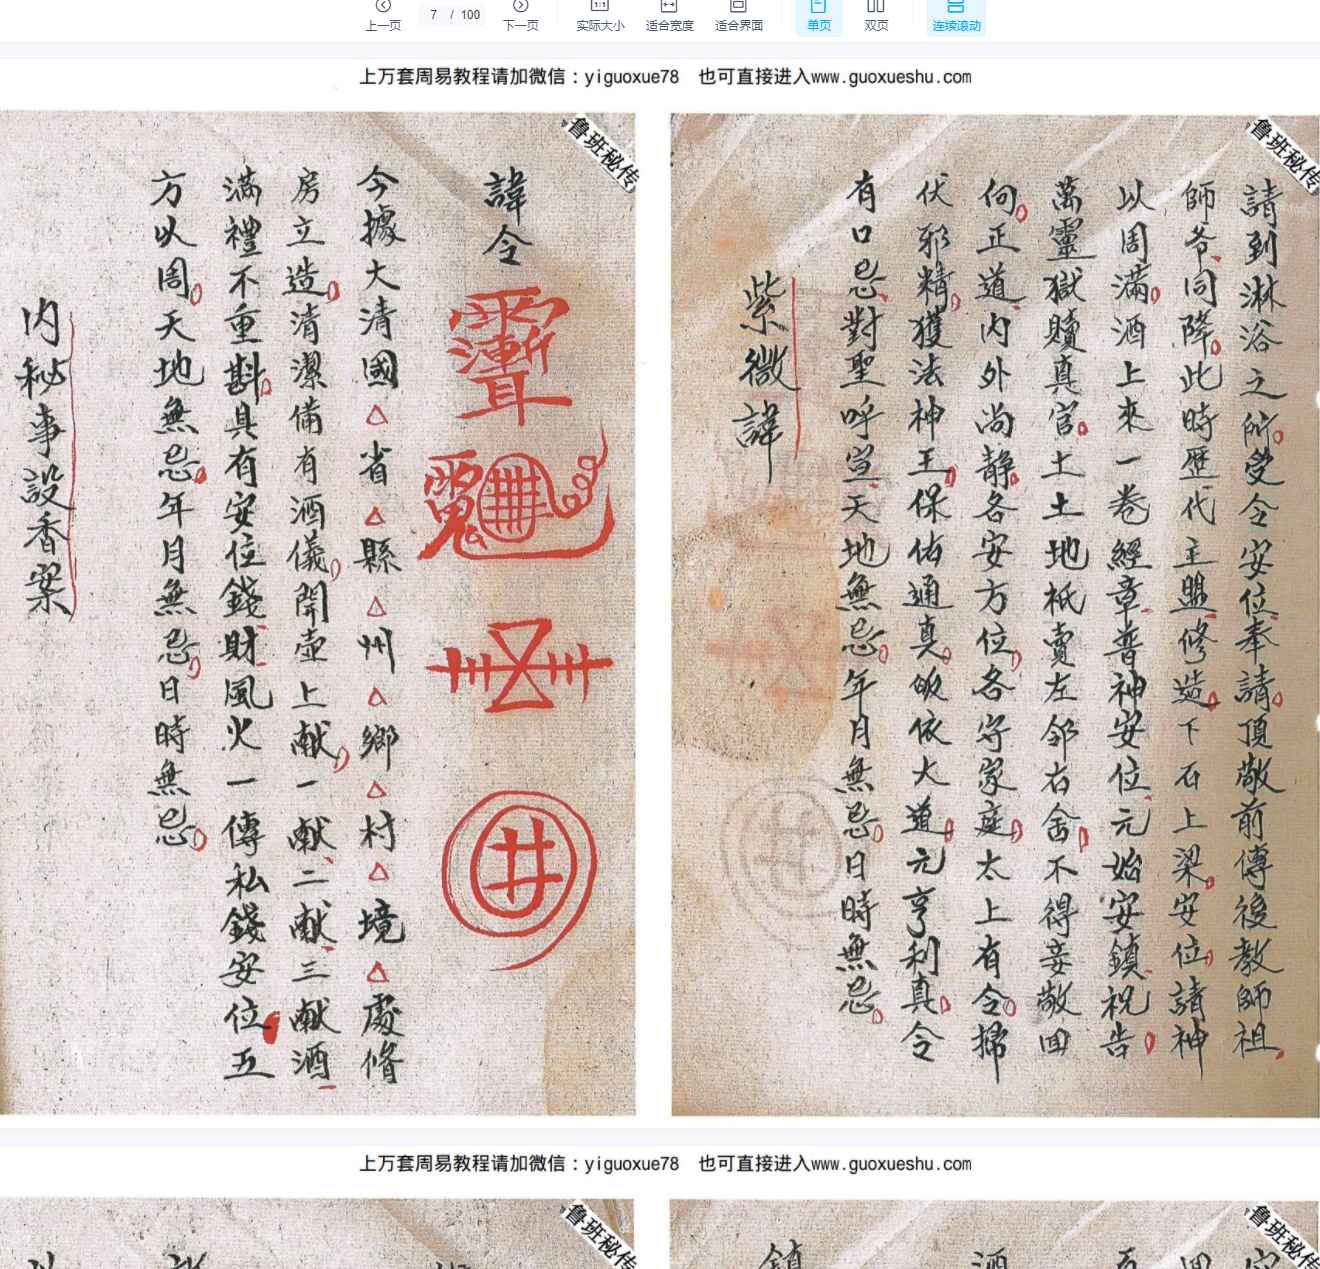 上一页
7 / 100
下一页
实际大小
适合宽度
适合界面
单页
双页
连续滚动
上万套周易教程请加微信：yiguoxue78 也可直接进入www.guoxueshu.com
鲁班秘传
請到淋浴之所受令安位奉請頂敬前傳後教師祖
師爷同降此時歷代主盟修造下石上梁安位請神
以周滿酒上來一卷經章普神安位元始安鎮祝告
萬靈獄瀆真官土土地祇賣左邻右舍不得妄敬回
向正道内外尚静各安方位各守家庭太上有令掃
伏邪精獲法神王保佑通真皈依大道元亨利真令
有口忌對聖呼宣天地無忌年月無忌日時無忌
紫微諱
鲁班秘传
諱令
今據大清國△省△縣△州△鄉△村△境△處脩
房立造清潔備有酒儀開壺上献一献二献三献酒
滿禮不重斟具有安位錢財風火一傳私錢安位五
方以周天地無忌年月無忌日時無忌
内秘事設香案
上万套周易教程请加微信：yiguoxue78 也可直接进入www.guoxueshu.com
鲁班秘传
鲁班秘传
鎮
酒